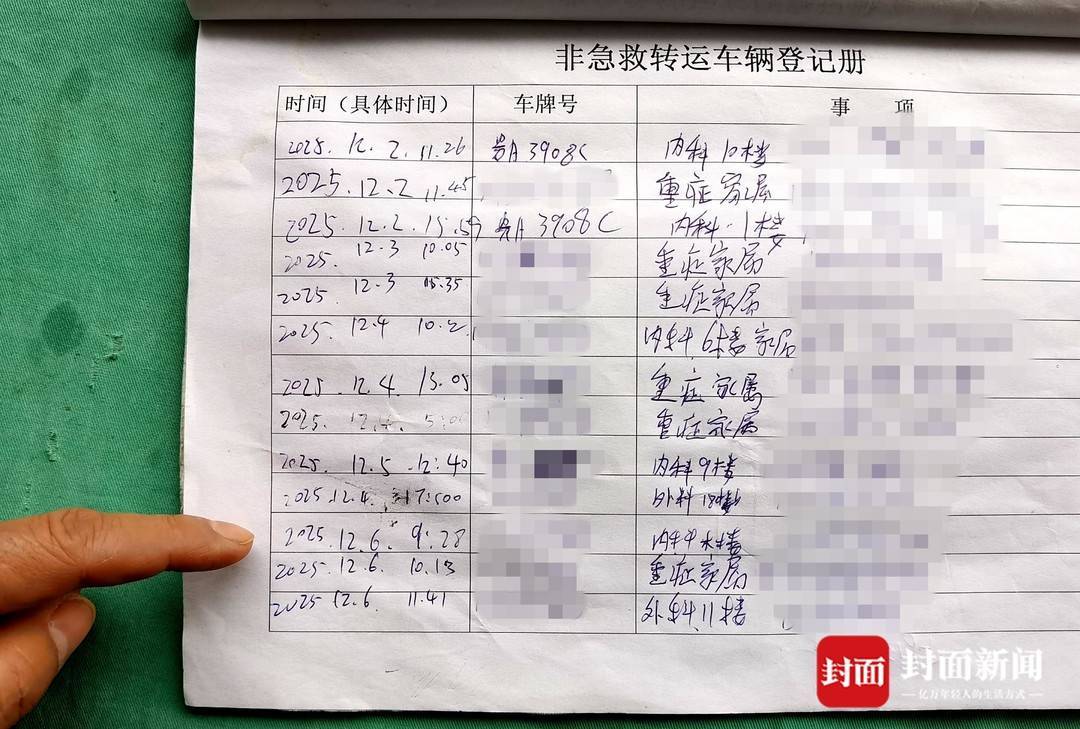 非急救转运车辆登记册
时间（具体时间） 车牌号 事 项
2025. 12. 2. 11.26 贵A 3908C 内科10楼
2025.12.2 11.45 重症家属
2025. 12.2. 15.59 贵A 3908C 内科·1楼
2025. 12.3 10.05 重症家属
2025. 12.3 15.35 重症家属
2025. 12.4 10.2 内科6楼家属
2025. 12.4. 15.05 重症家属
2025. 重症家属
2025. 12.5 12:40 内科9楼
2025.12.4. 外科18楼
2025. 12.6. 9:28 内科 楼
2025.12.6. 10.13 重症家属
2025 12.6. 11.41 外科11楼
封面 封面新闻
亿万年轻人的生活方式